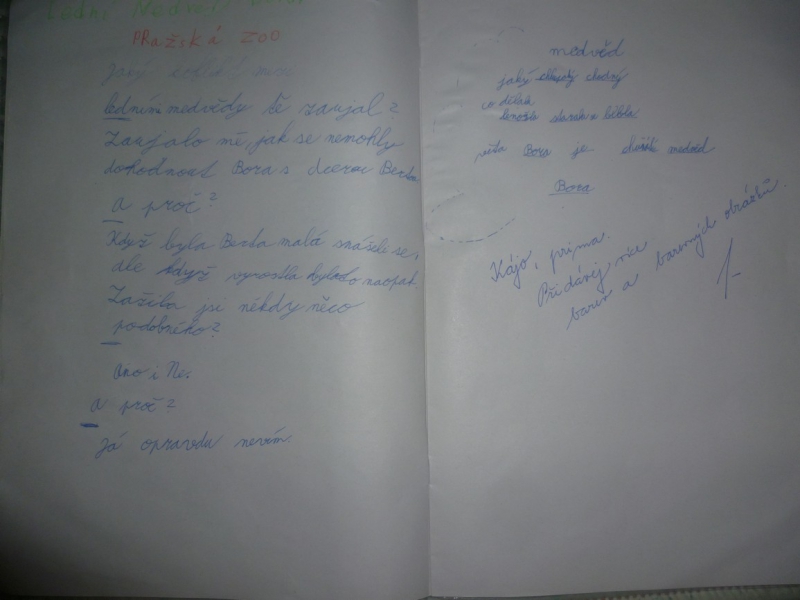 Lední Medvědi
PRažská ZOO
ledními medvědy tě zaujal?
Zaujalo mě, jak se nemohly
dohodnout Bora s dcerou Berta
A proč?
Když byla Berta malá snášeli se,
ale když vyrostla bylo to naopak.
Zažila jsi někdy něco
podobného?
Ano i Ne.
A proč?
Já opravdu nevím.
medvěd
jaký chudný
co dělala
věta Bora je medvěd
Bora
Kájo, prima.
Přidávej více
barev a barevných obrázků.
1-